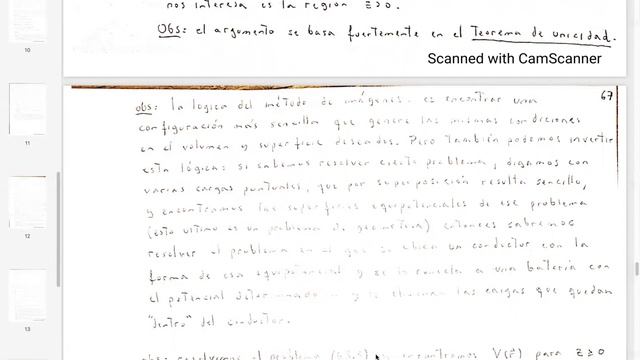 nos interesa es la región z>0.
Obs: el argumento se basa fuertemente en el Teorema de unicidad.
Scanned with CamScanner
67
Obs: la lógica del método de imágenes. es encontrar una
configuración más sencilla que genere las mismas condiciones
en el volumen y superficie deseados. Pero también podemos invertir
esta lógica: si sabemos resolver cierto problema, digamos con
varias cargas puntuales, que por superposición resulta sencillo,
y encontramos las superficies equipotenciales de ese problema
(esto último es un problema de geometría) entonces sabremos
resolver el problema en el que se un conductor con la
forma de esa equipotencial y se lo conecta a una batería con
el potencial determinado y se eliminan las cargas que quedan
"dentro" del conductor.
obs: el problema encontramos V(r⃗) para z≥0
10
11
12
13